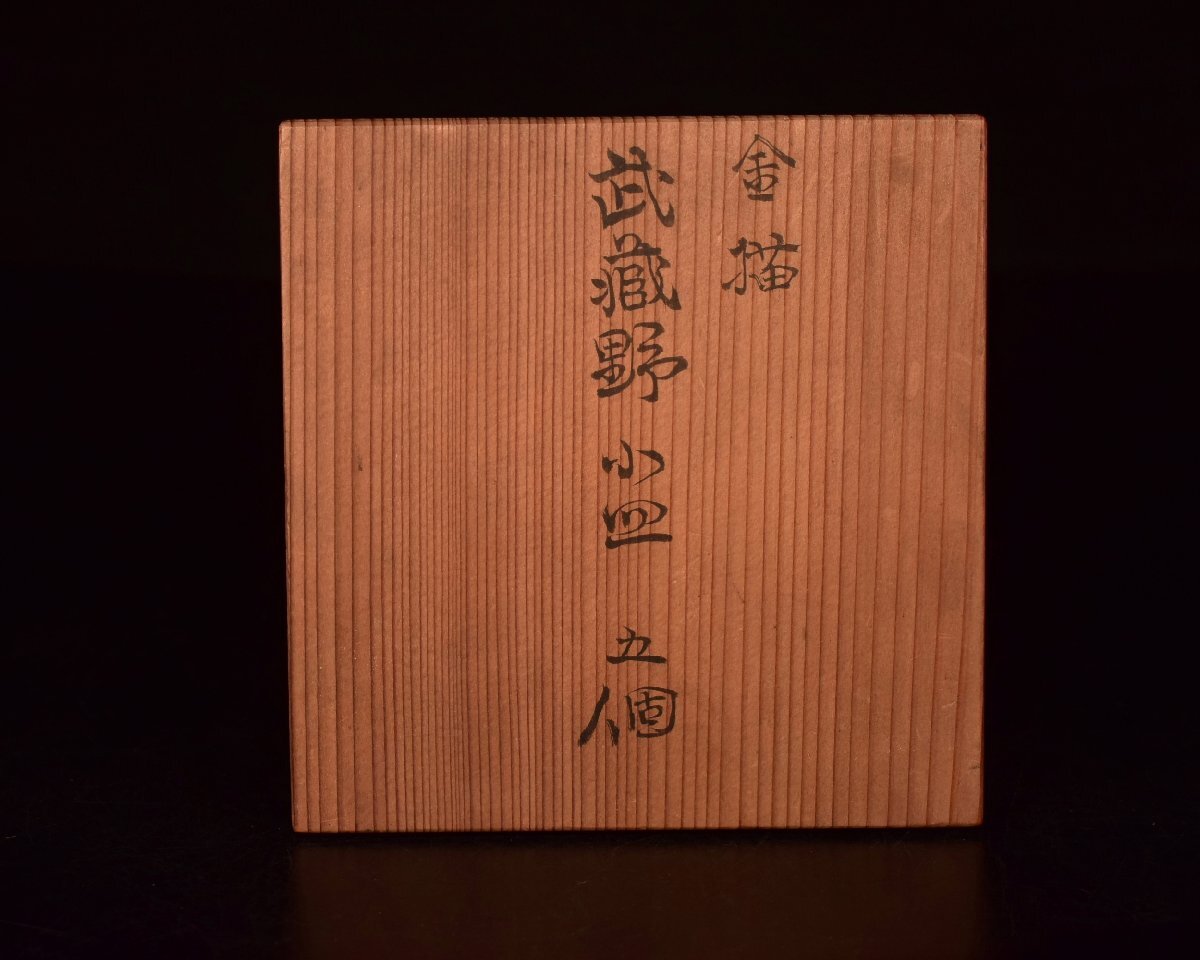 金描
武蔵野 小皿 五個